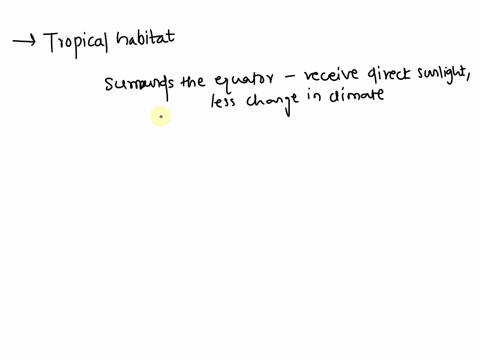 → Tropical habitat
Surrounds the equator – receive direct sunlight,
less change in climate